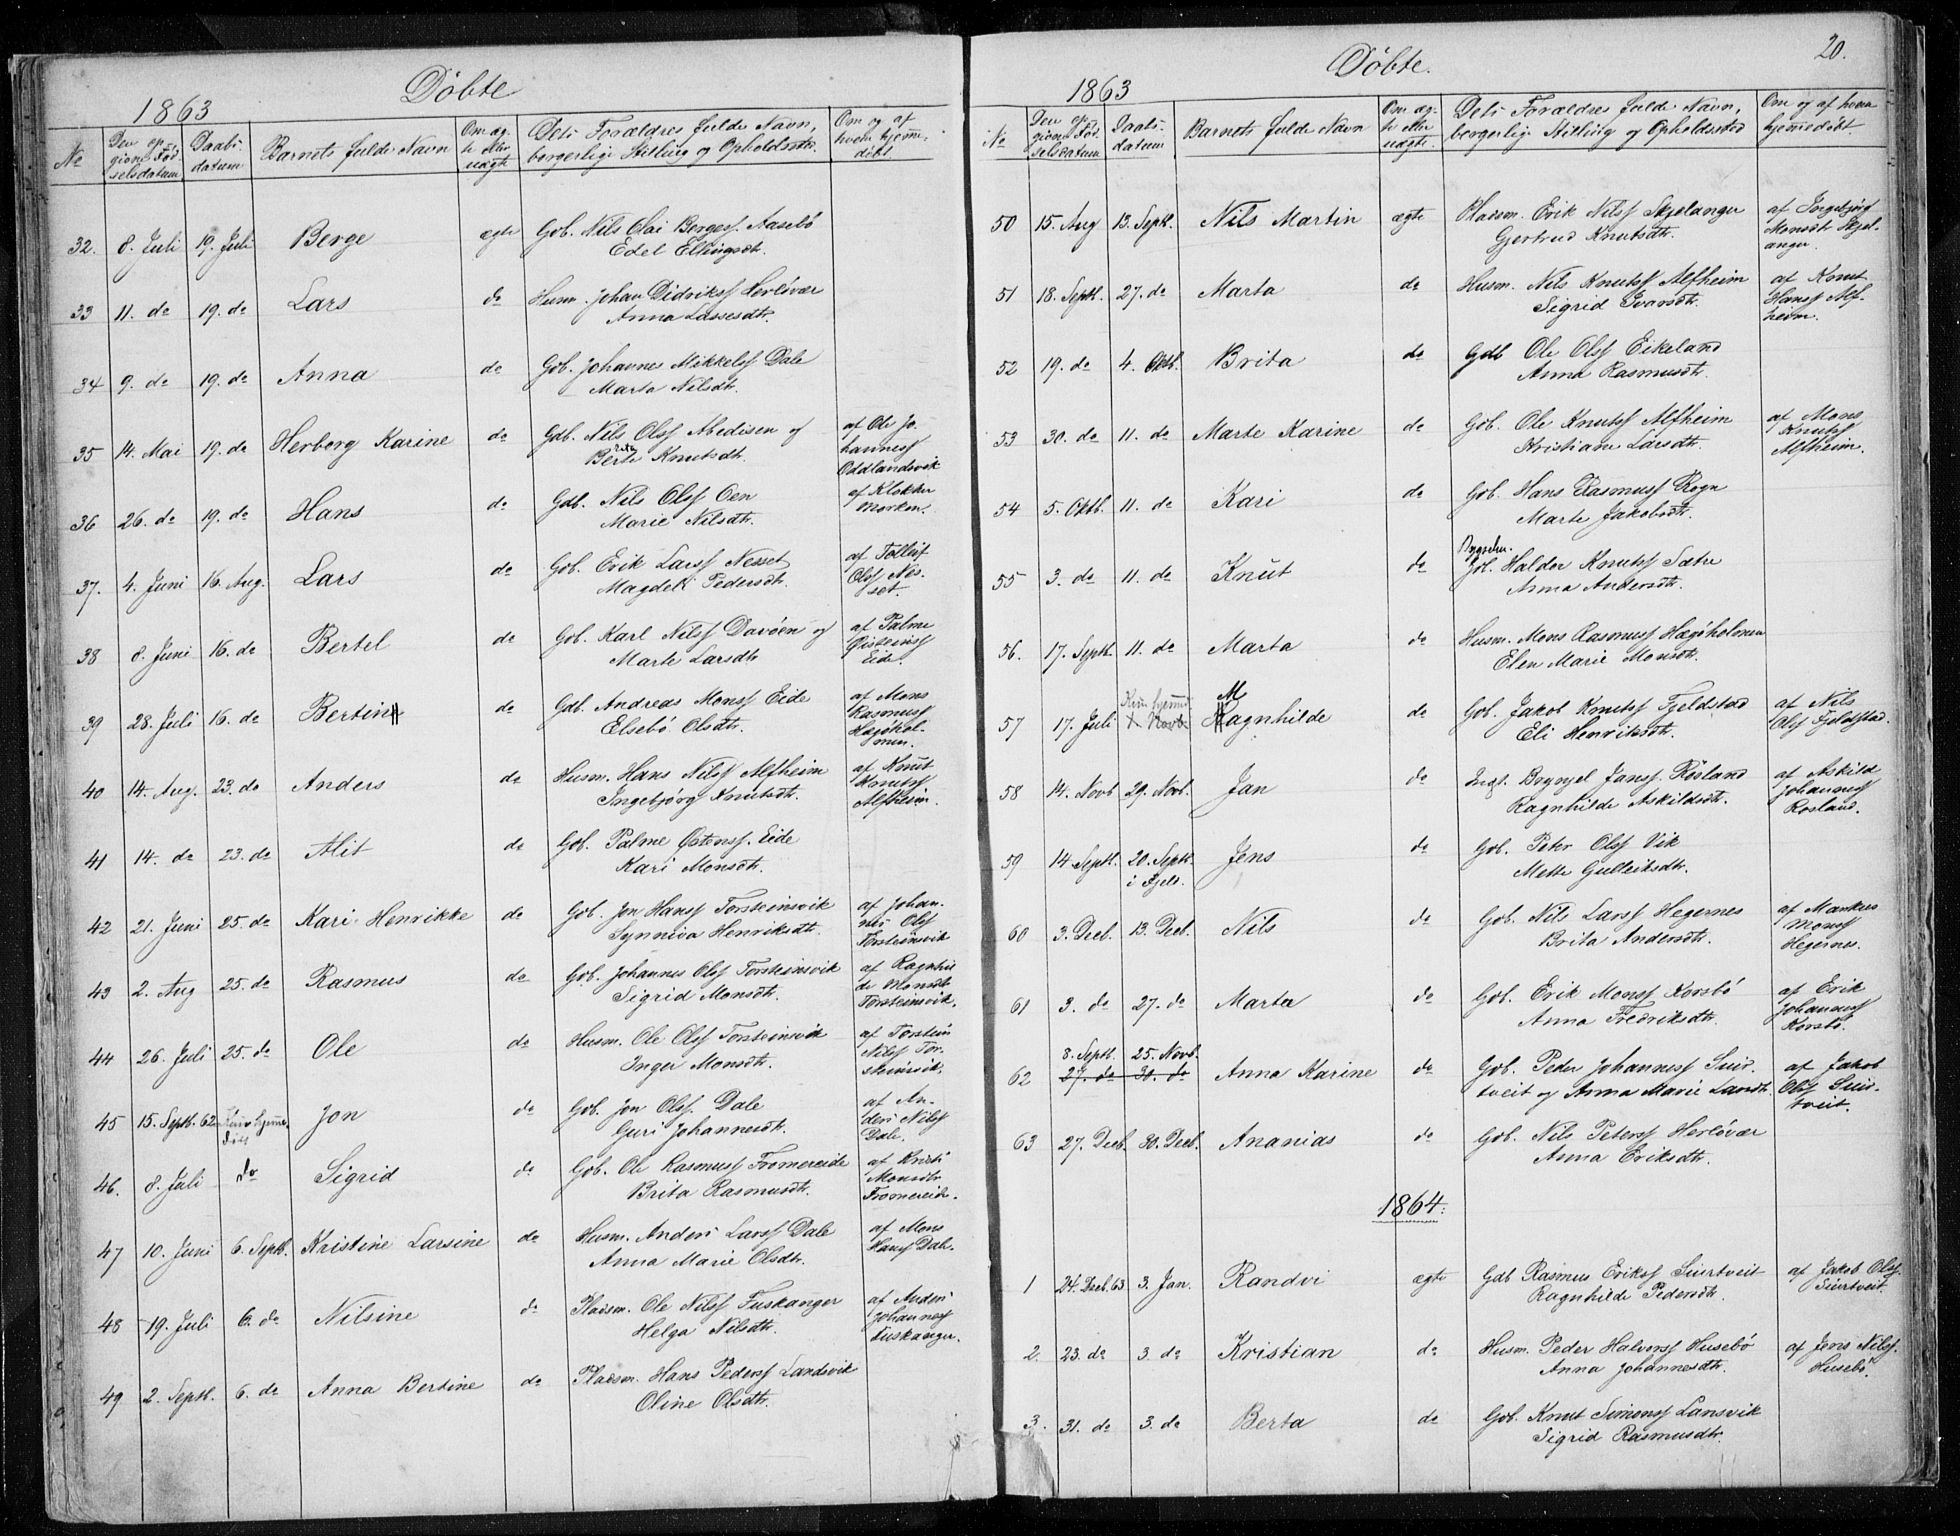 Döbte
1863
No
Den op-
givne Fød-
selsdatum
Daabs-
datum
Barnets fulde Navn
Om æg-
te eller
uægte
Dets Forældres fulde Navn,
borgerlige Stilling og Opholdssted
Om og af
hvem hjemme-
døbt.
32. 8. Juli 19. Juli Berge ægte Gdb. Nils Olai Bergess. Aasebö
Edel Ellingsdtr.
33 11. do 19. do Lars do Husm. Johan Didrikss Herlövær
Anna Lassesdtr.
34 9. do 19. do Anna do Gdb. Johannes Mikkelss Dale
Marta Nilsdtr.
35 14. Mai 19. do Herborg Karine do Gdb. Nils Olss Abedisen og
Knutsdtr.
af Ole Jo-
hanness
Oddlandsvik
36 26. do 19. do Hans do Gdb. Nils Olss Oen
Marie Nilsdtr.
af Klokker
Morken.
37. 4. Juni 16. Aug. Lars do Gdb. Erik Larss Nesset
Magdeli Pedersdtr.
af Tolleif
Olss Nes-
set.
38 8. Juni 16. do Bertel do Gdb. Karl Nilss Davöen og
Marte Larsdtr.
af Palme
Øisteinss
Eide.
39 28. Juli 16. do Bertin do Gdb. Andreas Monss Eide
Elsebö Olsdtr.
af Mons
Rasmuss
Hægöhol-
men.
40 14. Aug. 23. do Anders do Husm. Hans Nilss Alfheim
Ingebjörg Knutsdtr.
af Knut
Knutss
Alfheim.
41 14. do 23. do Alit do Gdb. Palme Østenss. Eide
Kari Monsdtr.
42 21. Juni 25. do Kari Henrikke do Gdb. Jon Hanss Torsteinsvik
Synneva Henriksdtr.
af Johan-
nes Olss
Torsteinsvik
43 2. Aug 25. do Rasmus do Gdb. Johannes Olss Torsteinsvik
Sigrid Monsdtr.
af Ragnhil-
de Monsdtr
Torsteinsvik.
44 26. Juli 25. do Ole do Husm. Ole Olss Torsteinsvik
Inger Monsdtr.
af Torstein
Nilss Tor-
steinsvik.
45 15. Septb. 62 Kun hjemme-
døbt Jon do Gdb. Jon Olss. Dale
Guri Johannesdtr.
af An-
ders Nilss
Dale.
46. 8. Juli do Sigrid do Gdb. Ole Rasmuss Fromereide
Brita Rasmusdtr.
af Kristi
Monsdtr
Fromereide.
47 10. Juni 6. Septb. Kristine Larsine do Husm. Anders Larss Dale
Anna Marie Olsdtr.
af Mons
Hanss Dale.
48 19. Juli 6. do Nilsine do Pladsm. Ole Nilss Tuskanger
Helga Nilsdtr.
af Anders
Johanness
Tuskanger.
49 2. Septb. 6. do Anna Bertine do Pladsm. Hans Pederss Landsvik
Oline Olsdtr.
20.
Döbte.
1863
No
Den op-
givne Fød-
selsdatum
Daabs-
datum
Barnets fulde Navn
Om æg-
te eller
uægte.
Dets Forældres fulde Navn,
borgerlig Stilling og Opholdssted
Om og af hvem
hjemmedöbt.
50 15. Aug 13. Septb. Nils Martin ægte Pladsm. Erik Nilss Skjelanger
Gjertrud Knutsdtr.
af Ingebjörg
Monsdtr Skjel-
anger.
51 18. Septb. 27. do Marta do Husm. Nils Knutss Alfheim
Sigrid Ivarsdtr.
af Knut
Hanss Alf-
heim.
52 19. do 4. Oktb. Brita do Gdb Ole Olss Eikeland
Anna Rasmusdtr.
53 30. do 11. do Marte Karine do Gdb. Ole Knutss Alfheim
Kristiane Larsdtr.
af Mons
Knutss
Alfheim.
54 5. Oktb. 11. do Kari do Gdb. Hans Rasmuss Rogn
Marte Jakobsdtr.
Bygselm.
55 3. do 11. do Knut do Gdb. Haldor Knutss Sætre
Anna Andersdtr.
56. 17. Septb. 11. do Marta do Husm. Mons Rasmuss Hægöholmen
Elen Marie Monsdtr.
57 17. Juli Kun hjemmed. Magnhilde do Gdb. Jakob Knutss Fjeldstad
Eli Henriksdtr.
af Nils
Olss Fjeldstad.
58 14. Novb 29. Novb. Jan do Inds. Brynjel Janss. Rösland
Ragnhilde Askildsdtr.
af Askild
Johanness
Rosland.
59 14 Septb. 20. Septb.
i Fjeld. Jens do Gdb. Peter Olss Vik
Mette Gulleiksdtr.
60 3. Decb. 13. Decb. Nils do Gdb. Nils Larss Hegernes
Brita Andersdtr.
af Markus
Monss
Hegernes.
61 3. do 27. do Marta do Gdb. Erik Monss Korsbö
Anna Fredriksdtr.
af Erik
Johanness
Korsbö.
8. Septb. 25. Novb.
62 27. do 30. do Anna Karine do Gdb. Peder Johanness Suir-
tveit og Anna Marie Larsdtr.
af Jakob
Olss Suir-
tveit.
63 27. Decb. 30. Decb. Ananias do Gdb. Nils Peterss Herlövær
Anna Eriksdtr.
1864.
1 24. Decb 63 3. Jan. Randvi ægte Gdb Rasmus Erikss Suirtveit
Ragnhilde Pedersdtr.
af Jakob Olss.
Suirtveit.
2. 23. do 3. do Kristian do Husm. Peder Halvorss Husebö
Anna Johannesdtr.
af Jens Nilss.
Husebö.
3. 31. do 3. do Berta do Gdb. Knut Simonss Lansvik
Sigrid Rasmusdtr.